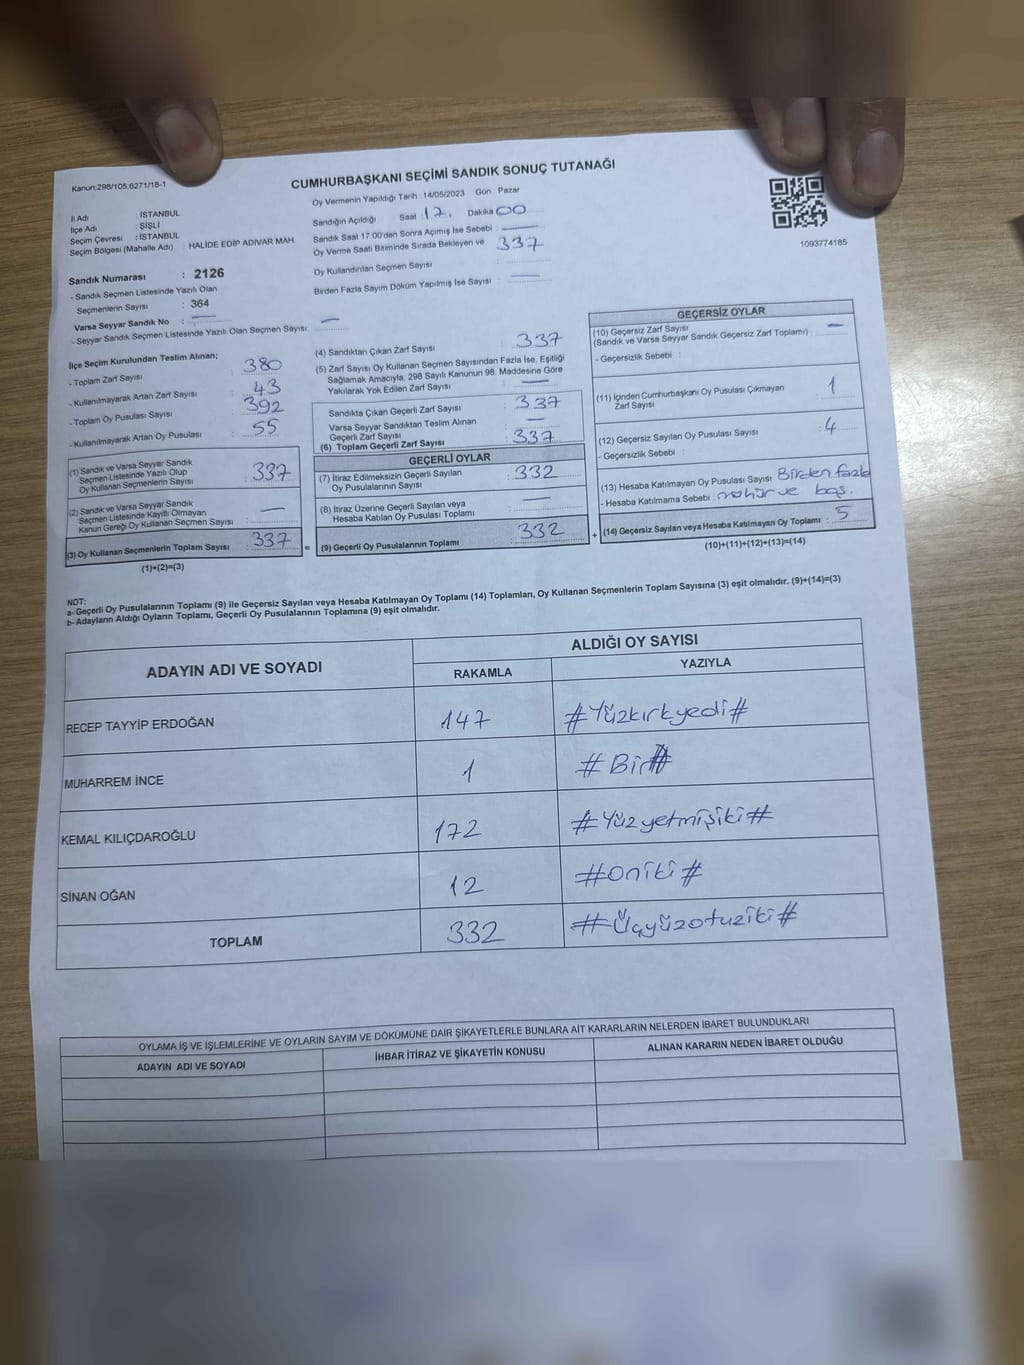 Kanun;298/105;6271/18-1
CUMHURBAŞKANI SEÇİMİ SANDIK SONUÇ TUTANAĞI
Oy Vermenin Yapıldığı Tarih : 14/05/2023 Gün : Pazar
İl Adı : İSTANBUL
İlçe Adı : ŞİŞLİ
Seçim Çevresi : İSTANBUL
Seçim Bölgesi (Mahalle Adı) HALİDE EDİP ADIVAR MAH.
Sandık Numarası : 2126
- Sandık Seçmen Listesinde Yazılı Olan
Seçmenlerin Sayısı : 364
Varsa Seyyar Sandık No : —
- Seyyar Sandık Seçmen Listesinde Yazılı Olan Seçmen Sayısı: —
Sandığın Açıldığı Saat 17. Dakika 00
Sandık Saat 17:00'den Sonra Açılmış İse Sebebi : —
Oy Verme Saati Bitiminde Sırada Bekleyen ve 337
Oy Kullandırılan Seçmen Sayısı :
Birden Fazla Sayım Döküm Yapılmış İse Sayısı : —
1093774185
İlçe Seçim Kurulundan Teslim Alınan;
- Toplam Zarf Sayısı : 380
- Kullanılmayarak Artan Zarf Sayısı : 43
- Toplam Oy Pusulası Sayısı : 392
- Kullanılmayarak Artan Oy Pusulası : 55
(1) Sandık ve Varsa Seyyar Sandık
Seçmen Listesinde Yazılı Olup
Oy Kullanan Seçmenlerin Sayısı : 337
(2) Sandık ve Varsa Seyyar Sandık
Seçmen Listesinde Kayıtlı Olmayan
Kanun Gereği Oy Kullanan Seçmen Sayısı : —
(3) Oy Kullanan Seçmenlerin Toplam Sayısı : 337
(1)+(2)=(3)
(4) Sandıktan Çıkan Zarf Sayısı : 337
(5) Zarf Sayısı Oy Kullanan Seçmen Sayısından Fazla İse, Eşitliği
Sağlamak Amacıyla, 298 Sayılı Kanunun 98. Maddesine Göre
Yakılarak Yok Edilen Zarf Sayısı : —
Sandıkta Çıkan Geçerli Zarf Sayısı : 337
Varsa Seyyar Sandıktan Teslim Alınan
Geçerli Zarf Sayısı : —
(6) Toplam Geçerli Zarf Sayısı : 337
GEÇERLİ OYLAR
(7) İtiraz Edilmeksizin Geçerli Sayılan
Oy Pusulalarının Sayısı : 332
(8) İtiraz Üzerine Geçerli Sayılan veya
Hesaba Katılan Oy Pusulası Toplamı : —
= (9) Geçerli Oy Pusulalarının Toplamı : 332
GEÇERSİZ OYLAR
(10) Geçersiz Zarf Sayısı
(Sandık ve Varsa Seyyar Sandık Geçersiz Zarf Toplamı) : —
- Geçersizlik Sebebi :
(11) İçinden Cumhurbaşkanı Oy Pusulası Çıkmayan
Zarf Sayısı : 1
(12) Geçersiz Sayılan Oy Pusulası Sayısı : 4
- Geçersizlik Sebebi :
(13) Hesaba Katılmayan Oy Pusulası Sayısı : Birden fazla
- Hesaba Katılmama Sebebi : mühür ve boş.
+ (14) Geçersiz Sayılan veya Hesaba Katılmayan Oy Toplamı : 5
(10)+(11)+(12)+(13)=(14)
NOT:
a- Geçerli Oy Pusulalarının Toplamı (9) ile Geçersiz Sayılan veya Hesaba Katılmayan Oy Toplamı (14) Toplamları, Oy Kullanan Seçmenlerin Toplam Sayısına (3) eşit olmalıdır. (9)+(14)=(3)
b- Adayların Aldığı Oyların Toplamı, Geçerli Oy Pusulalarının Toplamına (9) eşit olmalıdır.
ADAYIN ADI VE SOYADI
ALDIĞI OY SAYISI
RAKAMLA YAZIYLA
RECEP TAYYİP ERDOĞAN 147 #Yüzkırkyedi#
MUHARREM İNCE 1 #Bir#
KEMAL KILIÇDAROĞLU 172 #Yüzyetmişiki#
SİNAN OĞAN 12 #oniki#
TOPLAM 332 #Üçyüzotuziki#
OYLAMA İŞ VE İŞLEMLERİNE VE OYLARIN SAYIM VE DÖKÜMÜNE DAİR ŞİKAYETLERLE BUNLARA AİT KARARLARIN NELERDEN İBARET BULUNDUKLARI
ADAYIN ADI VE SOYADI İHBAR İTİRAZ VE ŞİKAYETİN KONUSU ALINAN KARARIN NEDEN İBARET OLDUĞU